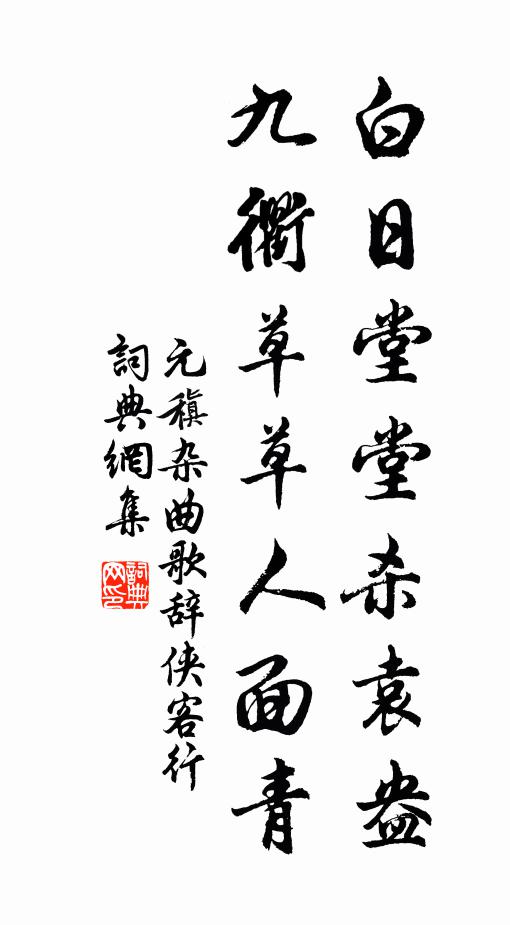 白日堂堂杀袁盎
九衢草草人面青
元稹杂曲歌辞侠客行
詞典網集
詞典网印